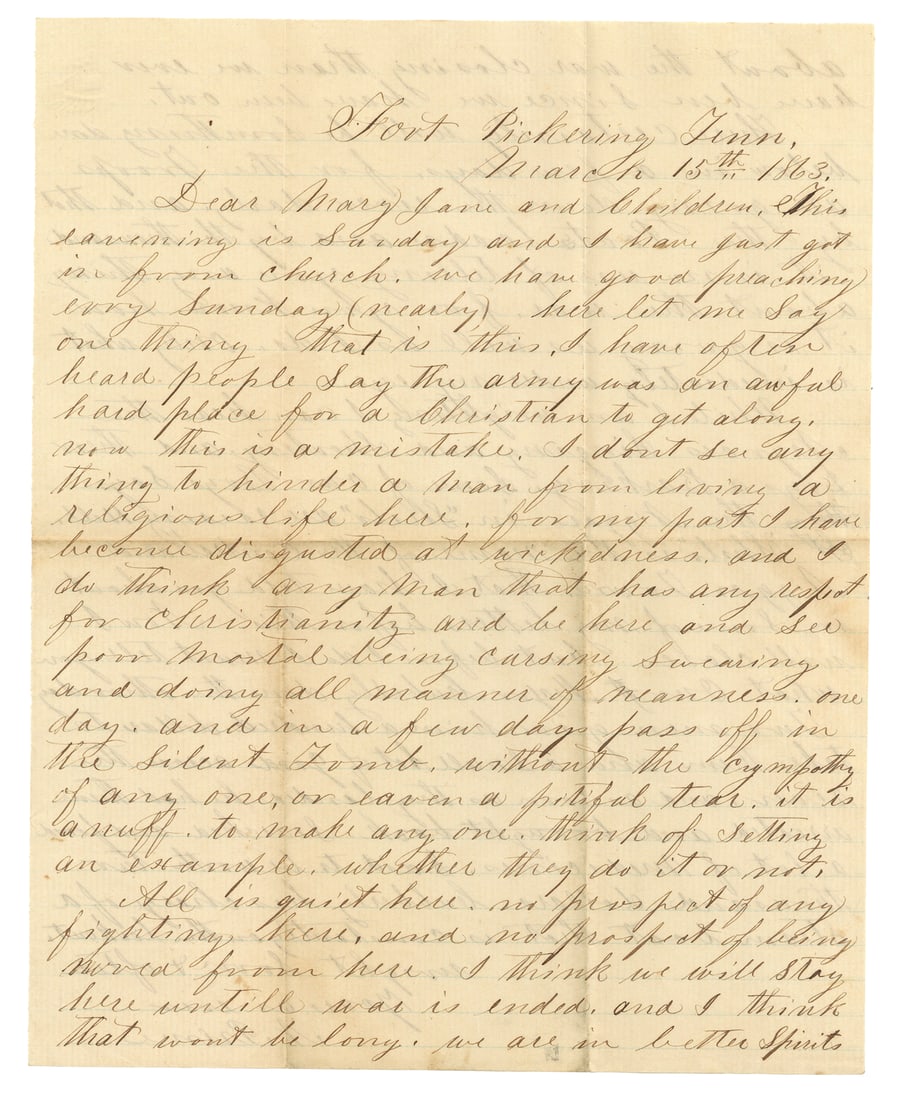 Fort Pickering Tenn,
March 15th 1863.
Dear Mary Jane and Children. This
eavening is Sunday and I have just got
in from Church. we have good preaching
evry Sunday (nearly) here let me Say
one thing that is this. I have often
heard people Say the army was an awful
hard place for a Christian to get along.
now this is a mistake. I dont see any
thing to hinder a man from living a
religious life here. for my part I have
become disgusted at wickedness. and I
do think any man that has any respect
for Christianity and be here and see
poor mortal being carsing Swearing
and doing all manner of meanness. one
day. and in a few days pass off in
the Silent Tomb. without the Cympathy
of any one, or eaven a pitiful tear. it is
anuff. to make any one. think of Setting
an example. whether they do it or not.
All is quiet here. no prospect of any
fighting here. and no prospect of being
moved from here. I think we will Stay
here untill war is ended. and I think
that wont be long. we are in better Spirits